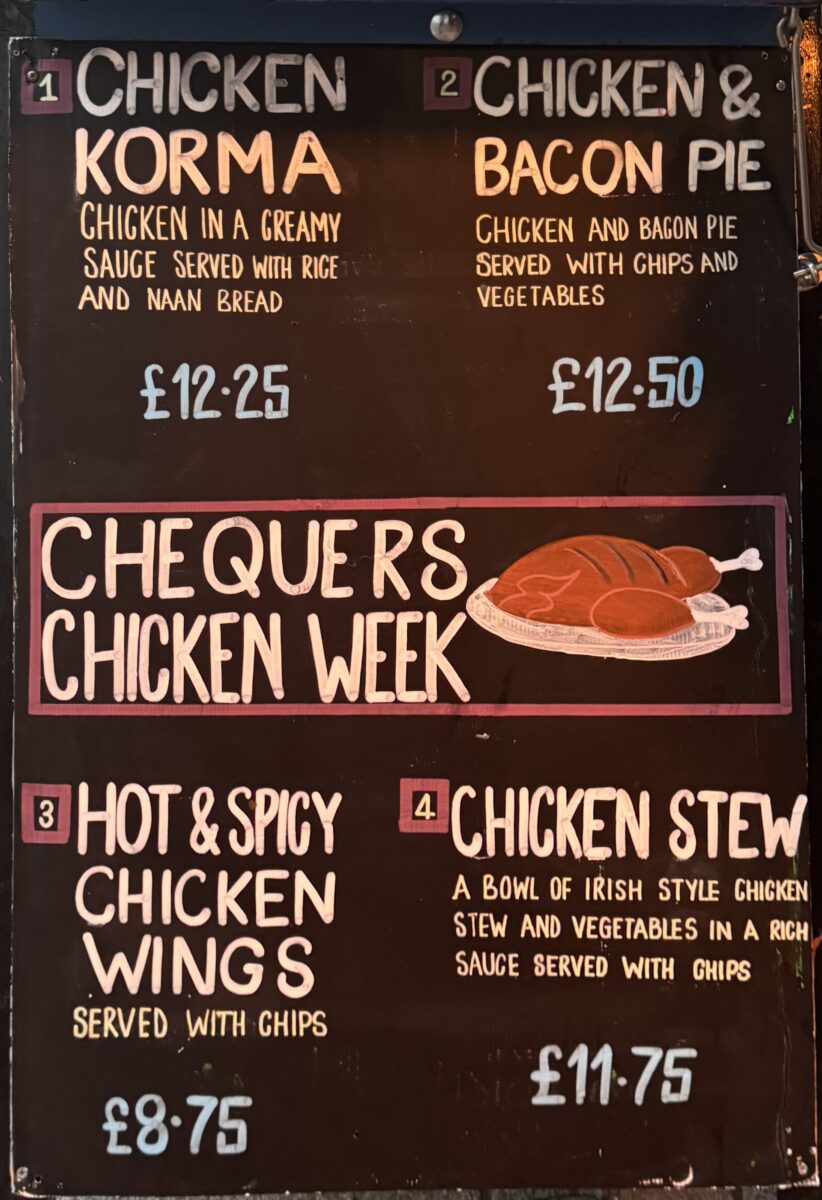 1 CHICKEN
KORMA
CHICKEN IN A CREAMY
SAUCE SERVED WITH RICE
AND NAAN BREAD
£12.25
2 CHICKEN &
BACON PIE
CHICKEN AND BACON PIE
SERVED WITH CHIPS AND
VEGETABLES
£12.50
CHEQUERS
CHICKEN WEEK
3 HOT & SPICY
CHICKEN
WINGS
SERVED WITH CHIPS
£8.75
4 CHICKEN STEW
A BOWL OF IRISH STYLE CHICKEN
STEW AND VEGETABLES IN A RICH
SAUCE SERVED WITH CHIPS
£11.75